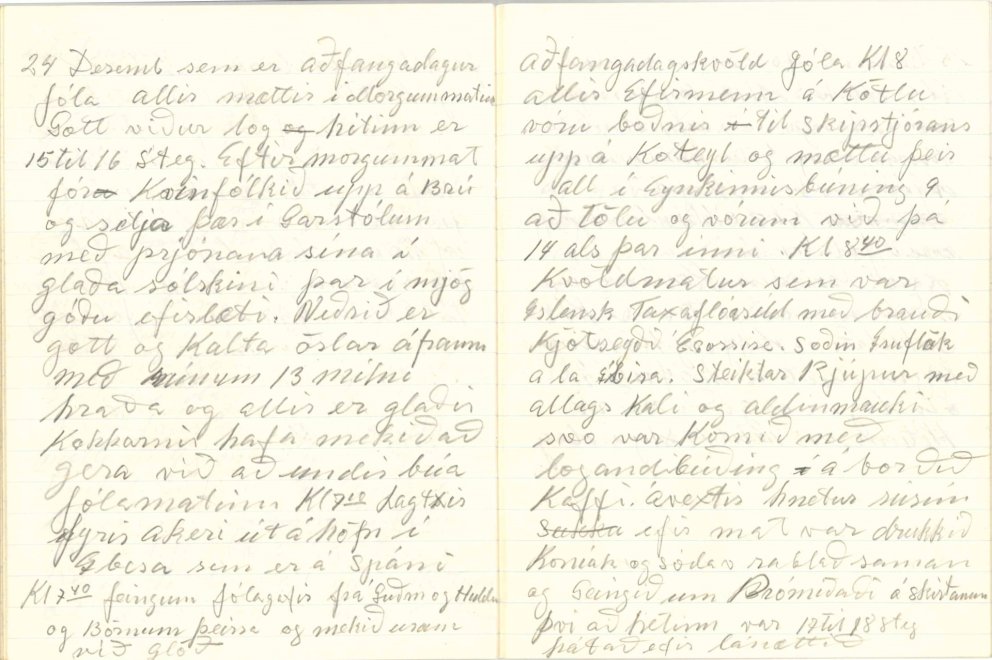 24 Desemb sem er aðfangadagur
jóla allir mættir i Morgunmatin
Gott viður log og hitinn er
15 til 16 Steg. Eftir morgunmat
fóra Kvinfólkið upp á Brú
og setja þær i Garstólum
með prjónana sína í
glaða sólskini þar í mjög
góðu efirlæti. Veðrið er
gott og Katla öslar áfram
með sínum 13 mílni
hraða og allir er glaðir
Kokkarnir hafa mekið að
gera við að undir búa
jólamatinn Kl 7 00 lagtxis
fyrir akeri út á höfn í
Ibesa sem er á Spáni
Kl 7 40 feingum jólagefir frá Guðm og Huldu
og Börnum þeirra og mekið uram
við glöð
aðfangadagskvöld Jóla Kl 8
allir Efirmenn á Kötlu
vóru boðnir i til Skipstjórans
upp á Koteyl og mættu þeir
all í Eynkinnisbúning 9
að tölu og vórum við þá
14 als þar inni. Kl 8 40
Kvöldmatur sem var
Islensk Faxaflóasild með brauði
Kjötseyði Soðin
a la Steiktar Rjúpur með
allags Kali og aldinmauki
svo var Komið með
logandbúðing i á borðið
Kaffi. ávextir hnetur rúsin
Sukku efir mat var drukkið
Koniak og Sódav rablað saman
og Geingið um á Skiðanum
þvi að hetinn var 17 til 18 steg
þátað efir lánættið